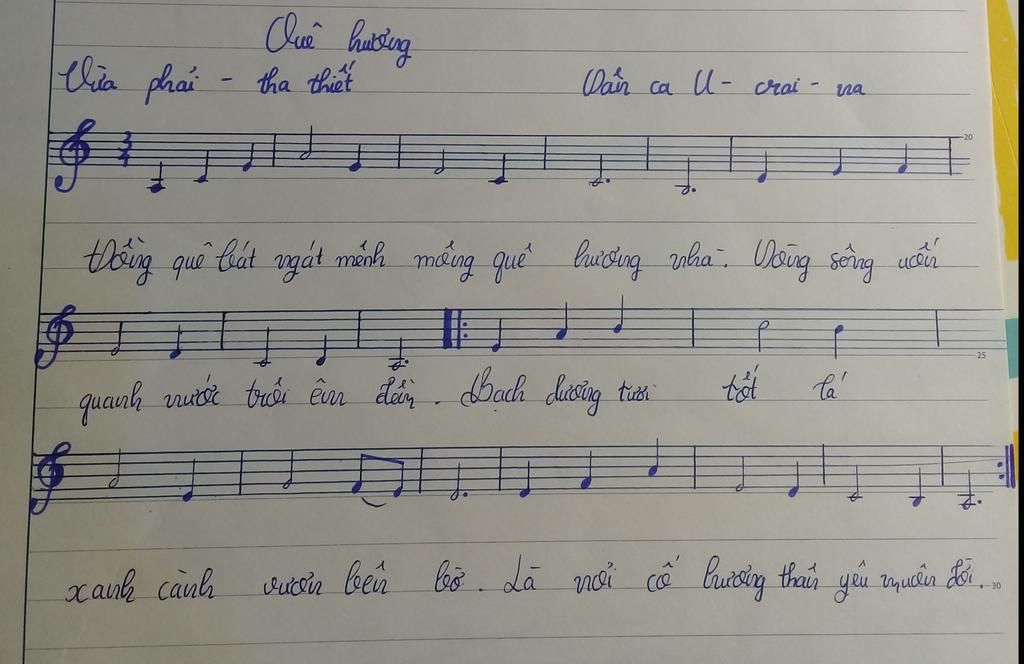 Quê hương
Vừa phải - tha thiết Dân ca U - crai - na
20
Đồng quê bát ngát mênh mông quê hương nhà. Dòng sông uốn
25
quanh nước trôi êm đềm. Bạch dương tươi tốt lá
xanh cành vươn bên bờ. Là nơi cố hương thân yêu muôn đời.
30